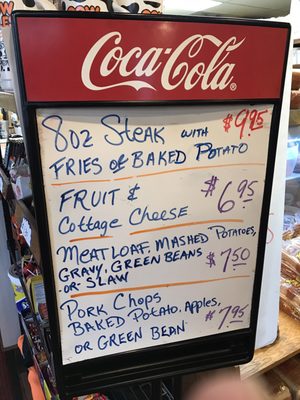 Coca-Cola
8oz Steak with $9.95
Fries of Baked Potato
Fruit & $6.95
Cottage Cheese
Meatloaf, Mashed Potatoes,
Gravy, Green Beans $7.50
or Slaw
Pork Chops
Baked Potato, Apples, $7.95
or Green Bean